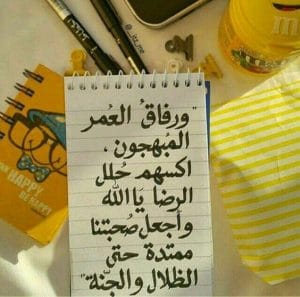 "ورفاقُ العُمر
المُبهجون،
اكسهم حُلل
الرضا يَا الله
وأجعل صُحبتنا
ممتدة حتىٰ
الظلال والجنّة"
HAPPY
BE HAPPY
m
M